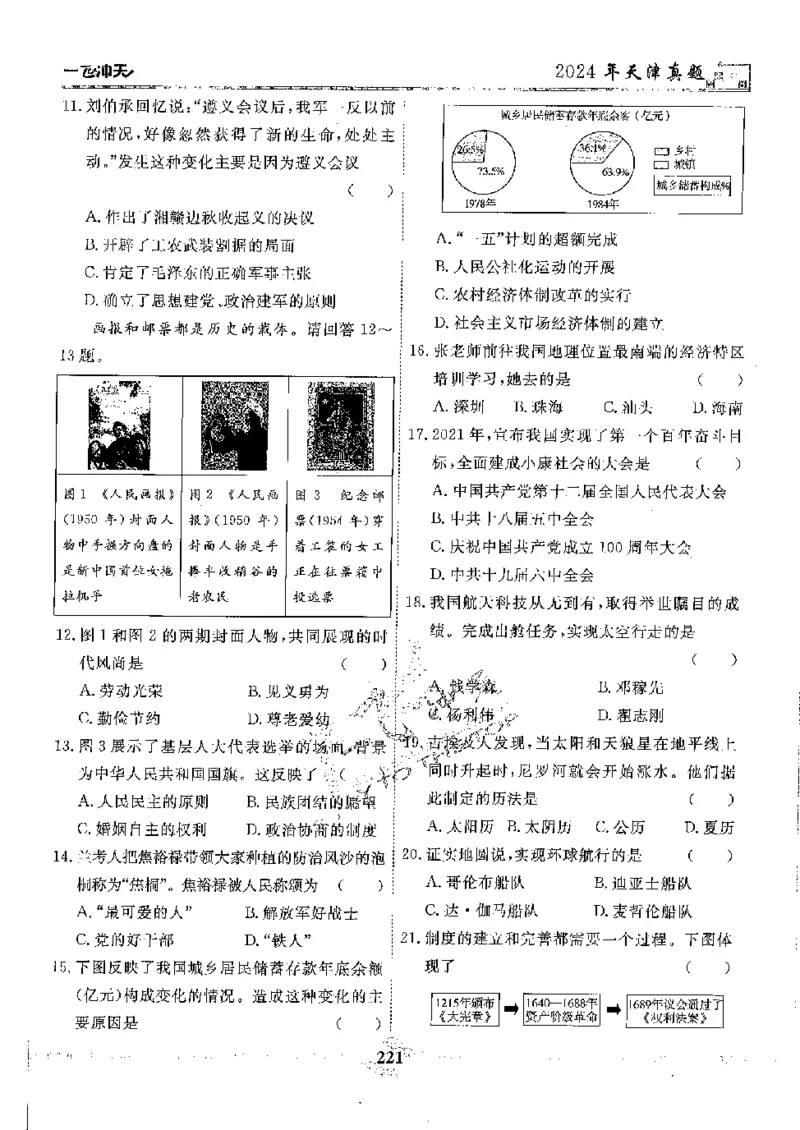 一飞冲天
2024 年天津真题
11. 刘伯承回忆说：“遵义会议后，我军一反以前
的情况，好像忽然获得了新的生命，处处主
动。”发生这种变化主要是因为遵义会议
（　　）
A. 作出了湘赣边秋收起义的决议
B. 开辟了工农武装割据的局面
C. 肯定了毛泽东的正确军事主张
D. 确立了思想建党、政治建军的原则
画报和邮票都是历史的载体。请回答 12～
13 题。
图 1 《人民画报》
（1950 年）封面人
物中手握方向盘的
是新中国首位女拖
拉机手
图 2 《人民画
报》（1950 年）
封面人物是手
捧丰收稻谷的
老农民
图 3 纪念邮
票（1954 年）穿
着工装的女工
正在往票箱中
投选票
12. 图 1 和图 2 的两期封面人物，共同展现的时
代风尚是 （　　）
A. 劳动光荣 B. 见义勇为
C. 勤俭节约 D. 尊老爱幼
13. 图 3 展示了基层人大代表选举的场面，背景
为中华人民共和国国旗。这反映了 （　　）
A. 人民民主的原则 B. 民族团结的愿望
C. 婚姻自主的权利 D. 政治协商的制度
14. 兰考人把焦裕禄带领大家种植的防治风沙的泡
桐称为“焦桐”。焦裕禄被人民称颂为 （　　）
A. “最可爱的人” B. 解放军好战士
C. 党的好干部 D. “铁人”
15. 下图反映了我国城乡居民储蓄存款年底余额
（亿元）构成变化的情况。造成这种变化的主
要原因是 （　　）
城乡居民储蓄存款年底余额（亿元）
26.5%
73.5%
1978年
36.1%
63.9%
1984年
乡村
城镇
城乡储蓄构成%
A. “一五”计划的超额完成
B. 人民公社化运动的开展
C. 农村经济体制改革的实行
D. 社会主义市场经济体制的建立
16. 张老师前往我国地理位置最南端的经济特区
培训学习，她去的是 （　　）
A. 深圳 B. 珠海 C. 汕头 D. 海南
17. 2021 年，宣布我国实现了第一个百年奋斗目
标，全面建成小康社会的大会是 （　　）
A. 中国共产党第十二届全国人民代表大会
B. 中共十八届五中全会
C. 庆祝中国共产党成立 100 周年大会
D. 中共十九届六中全会
18. 我国航天科技从无到有，取得举世瞩目的成
绩。完成出舱任务，实现太空行走的是
（　　）
A. 钱学森 B. 邓稼先
C. 杨利伟 D. 翟志刚
19. 古埃及人发现，当太阳和天狼星在地平线上
同时升起时，尼罗河就会开始涨水。他们据
此制定的历法是 （　　）
A. 太阳历 B. 太阴历 C. 公历 D. 夏历
20. 证实地圆说，实现环球航行的是 （　　）
A. 哥伦布船队 B. 迪亚士船队
C. 达·伽马船队 D. 麦哲伦船队
21. 制度的建立和完善都需要一个过程。下图体
现了 （　　）
1215年颁布
《大宪章》
1640—1688年
资产阶级革命
1689年议会通过了
《权利法案》
221